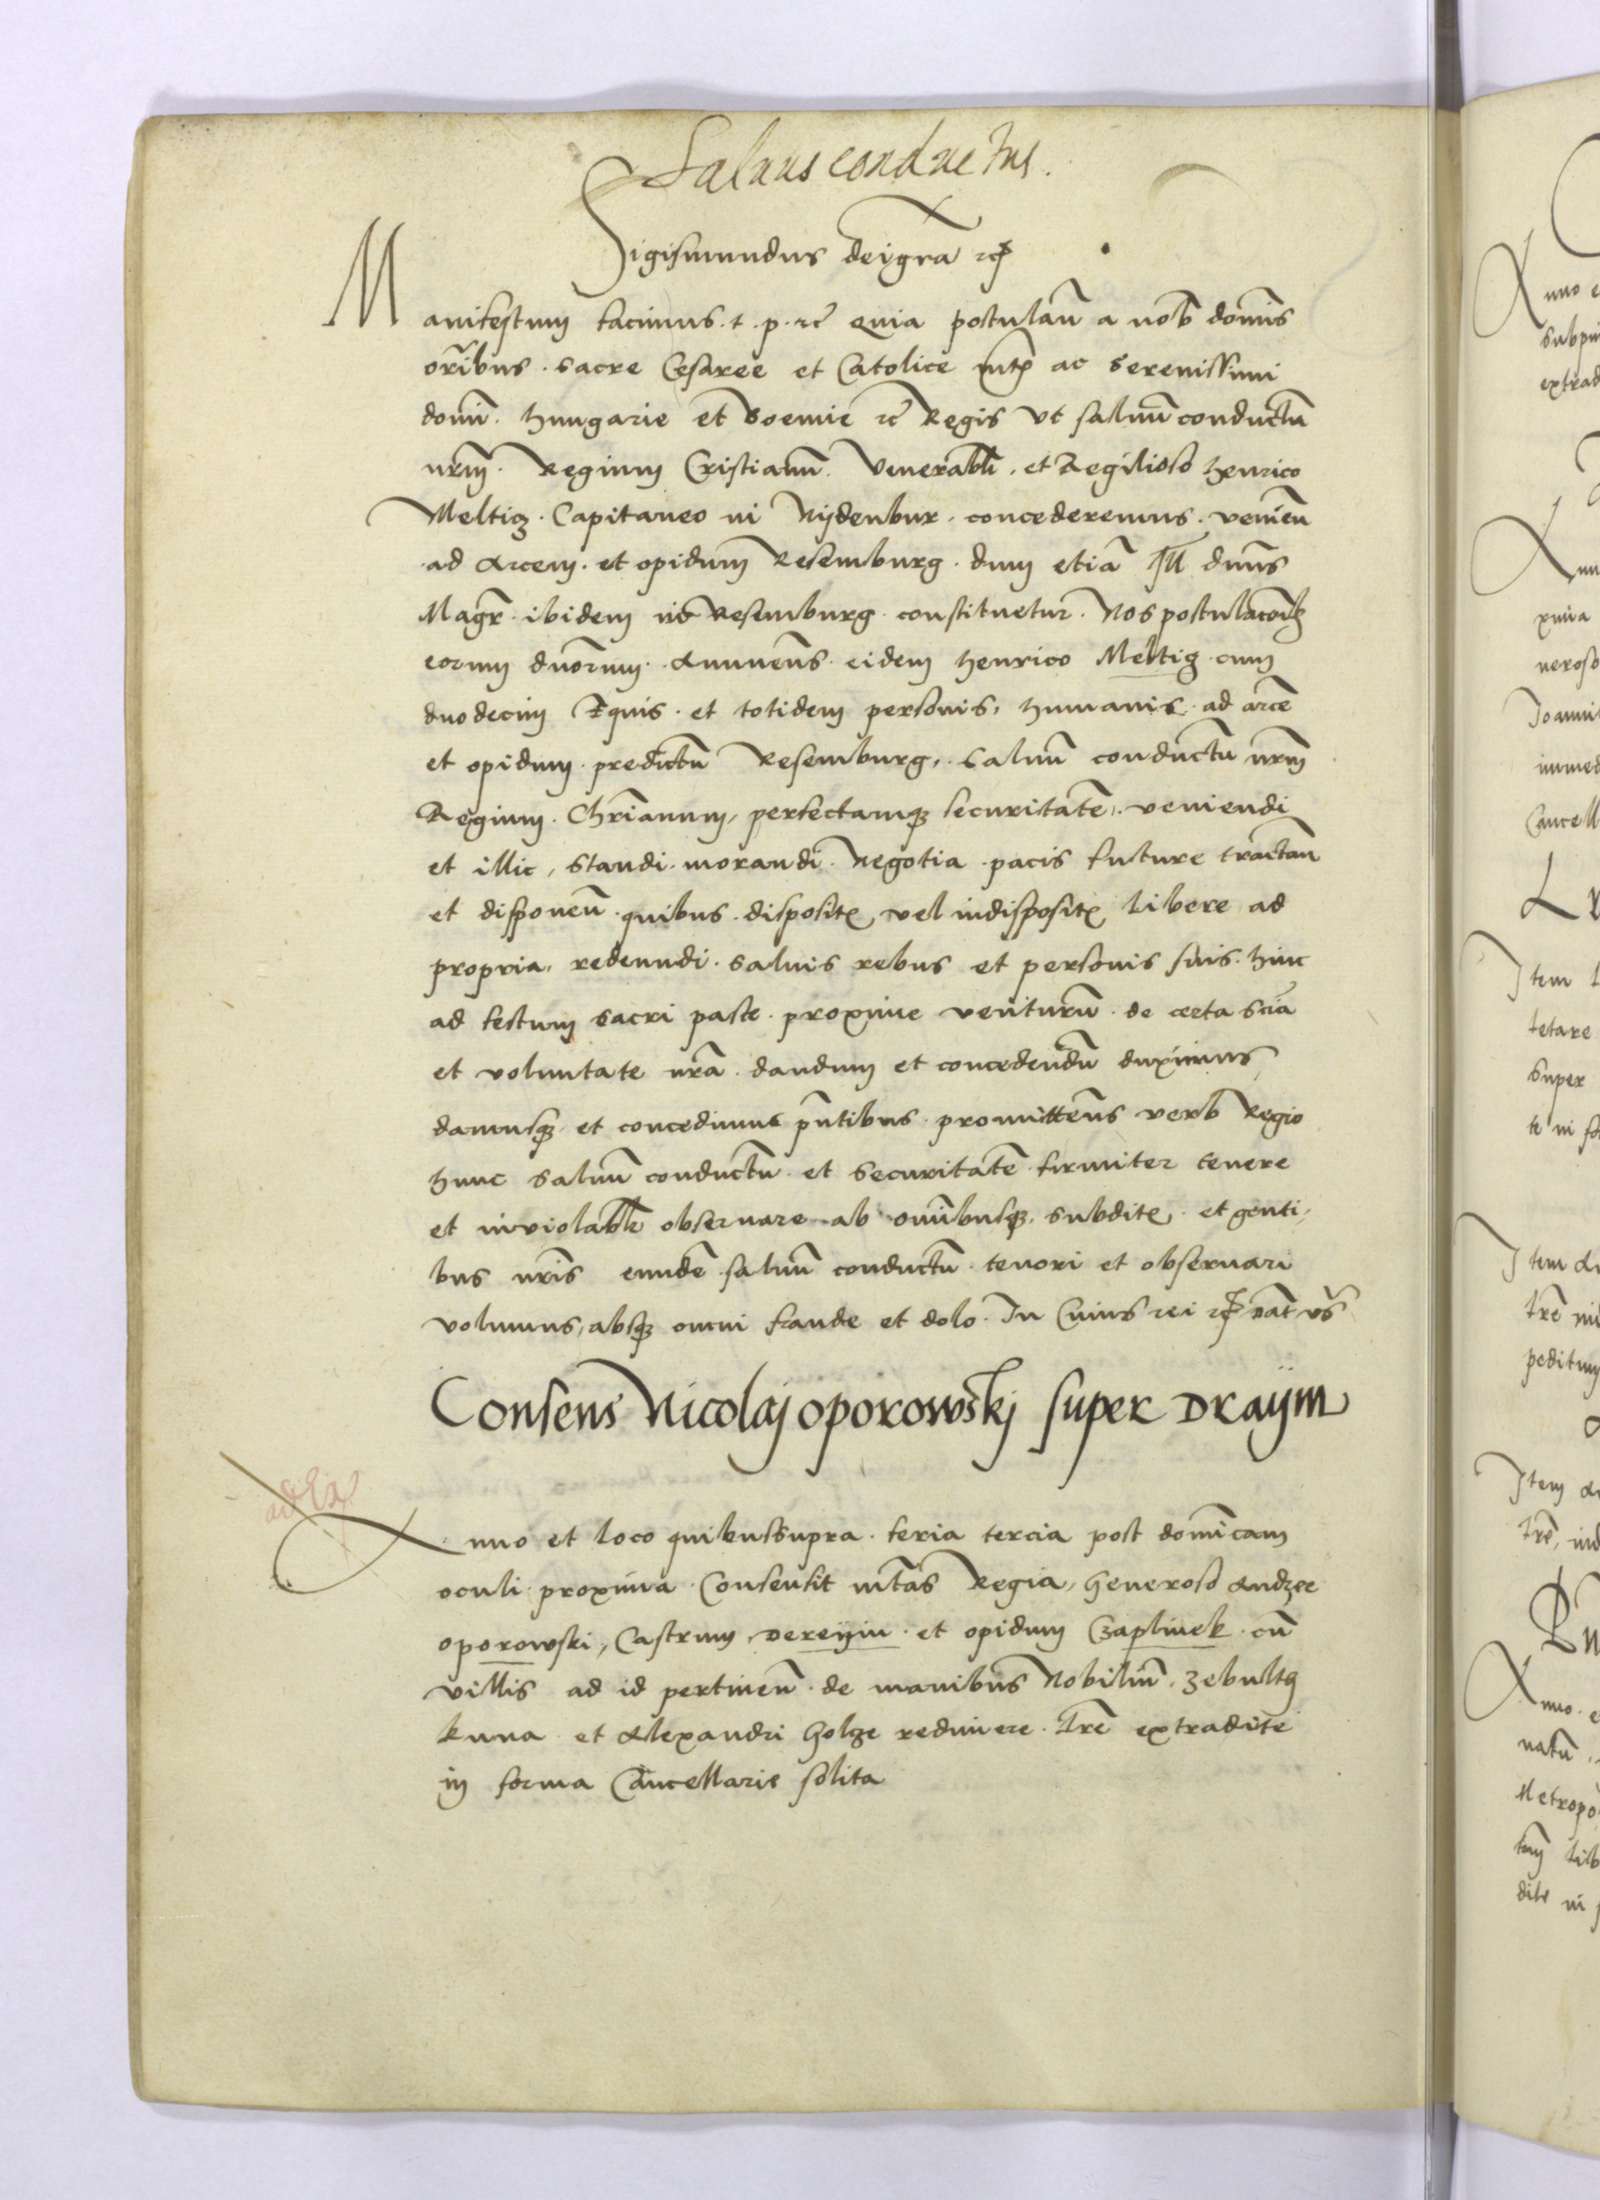 Saluus conductus.
Sigismundus dei gra etc
Manifestum facimus. t. p. etc Quia postulan a nob domis
oribus. sacre Cesaree et Catolice mtis ac Serenissimi
domi. Hungarie et Boemie etc Regis Vt saluu conductu
nrm. Regium Cristianu. Venerabli. et Religioso Henrico
Meltig. Capitaneo in Nydenbur. concederemus. venien
ad Arcem. et opidum Resemburg. dum etia Ill dnus
Magr. ibidem in Resemburg. constituetur. Nos postulaconib
eorum dnorum. Annuens. eidem Henrico Meltig. cum
duodecim Equis. et totidem personis, humanis. ad arce
et opidum. predictu Resemburg, saluu conductu nrm
Regium. Chrianum, perfectamq securitate, veniendi
et illic, standi. morandi. Negotia pacis future tractan
et disponen. quibus. dispositis vel indispositis Libere ad
propria. redeundi. saluis rebus et personis suis. hinc
ad festum sacri pasce. proxime venturu. de certa scia
et voluntate nra. dandum et concedendu duximus
damusq. et concedimus pntibus. promittens verb Regio
hunc saluu conductu et securitate firmiter tenere
et inviolabli obseruare ab omnibusq. subditis. et genti,
bus nris eunde saluu conductu. teneri et obseruari
volumus, absq omni fraude et dolo. In Cuius rei etc Dat vs
Consens Nicolaj oporowskj super Draym
Anno et loco quibus supra. feria tercia post domicam
oculi proxima. Consensit mtas Regia, Generoso Andree
oporowski, Castrum Dereyim. et opidum Czaplinek. cu
villis ad id pertinen. de manibus Nobiliu. Zebultg
kuna et Alexandri Golze redimere. Lre extradite
in forma Cancellarie solita